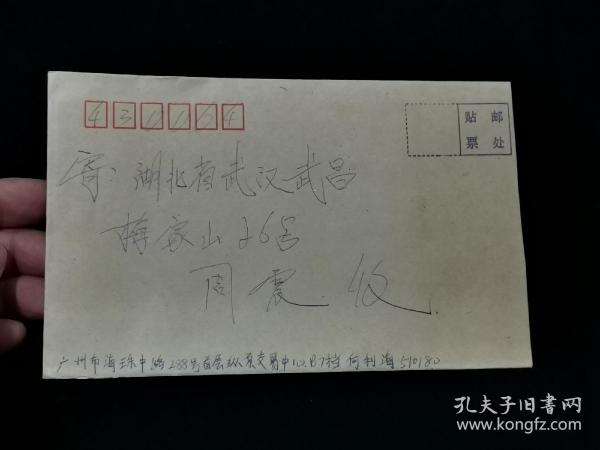 430064
贴邮
票处
寄:湖北省武汉武昌
梅家山26号
周震 收
广州市海珠中路288号首层纵原交易中心B7档 何利海 510180
孔夫子旧书网
www.kongfz.com